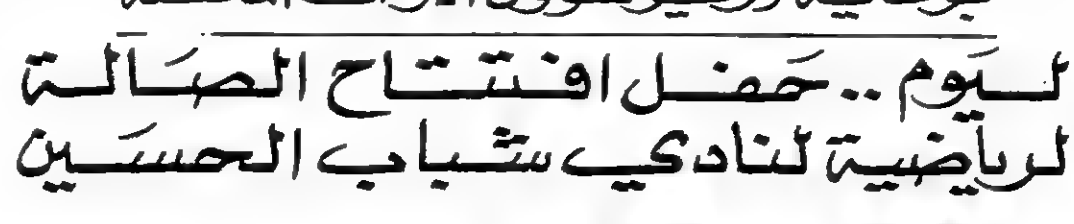 ليَوم .. حَفل افتتاح الصَالة
لرياضية لنادي شباب الحسَين